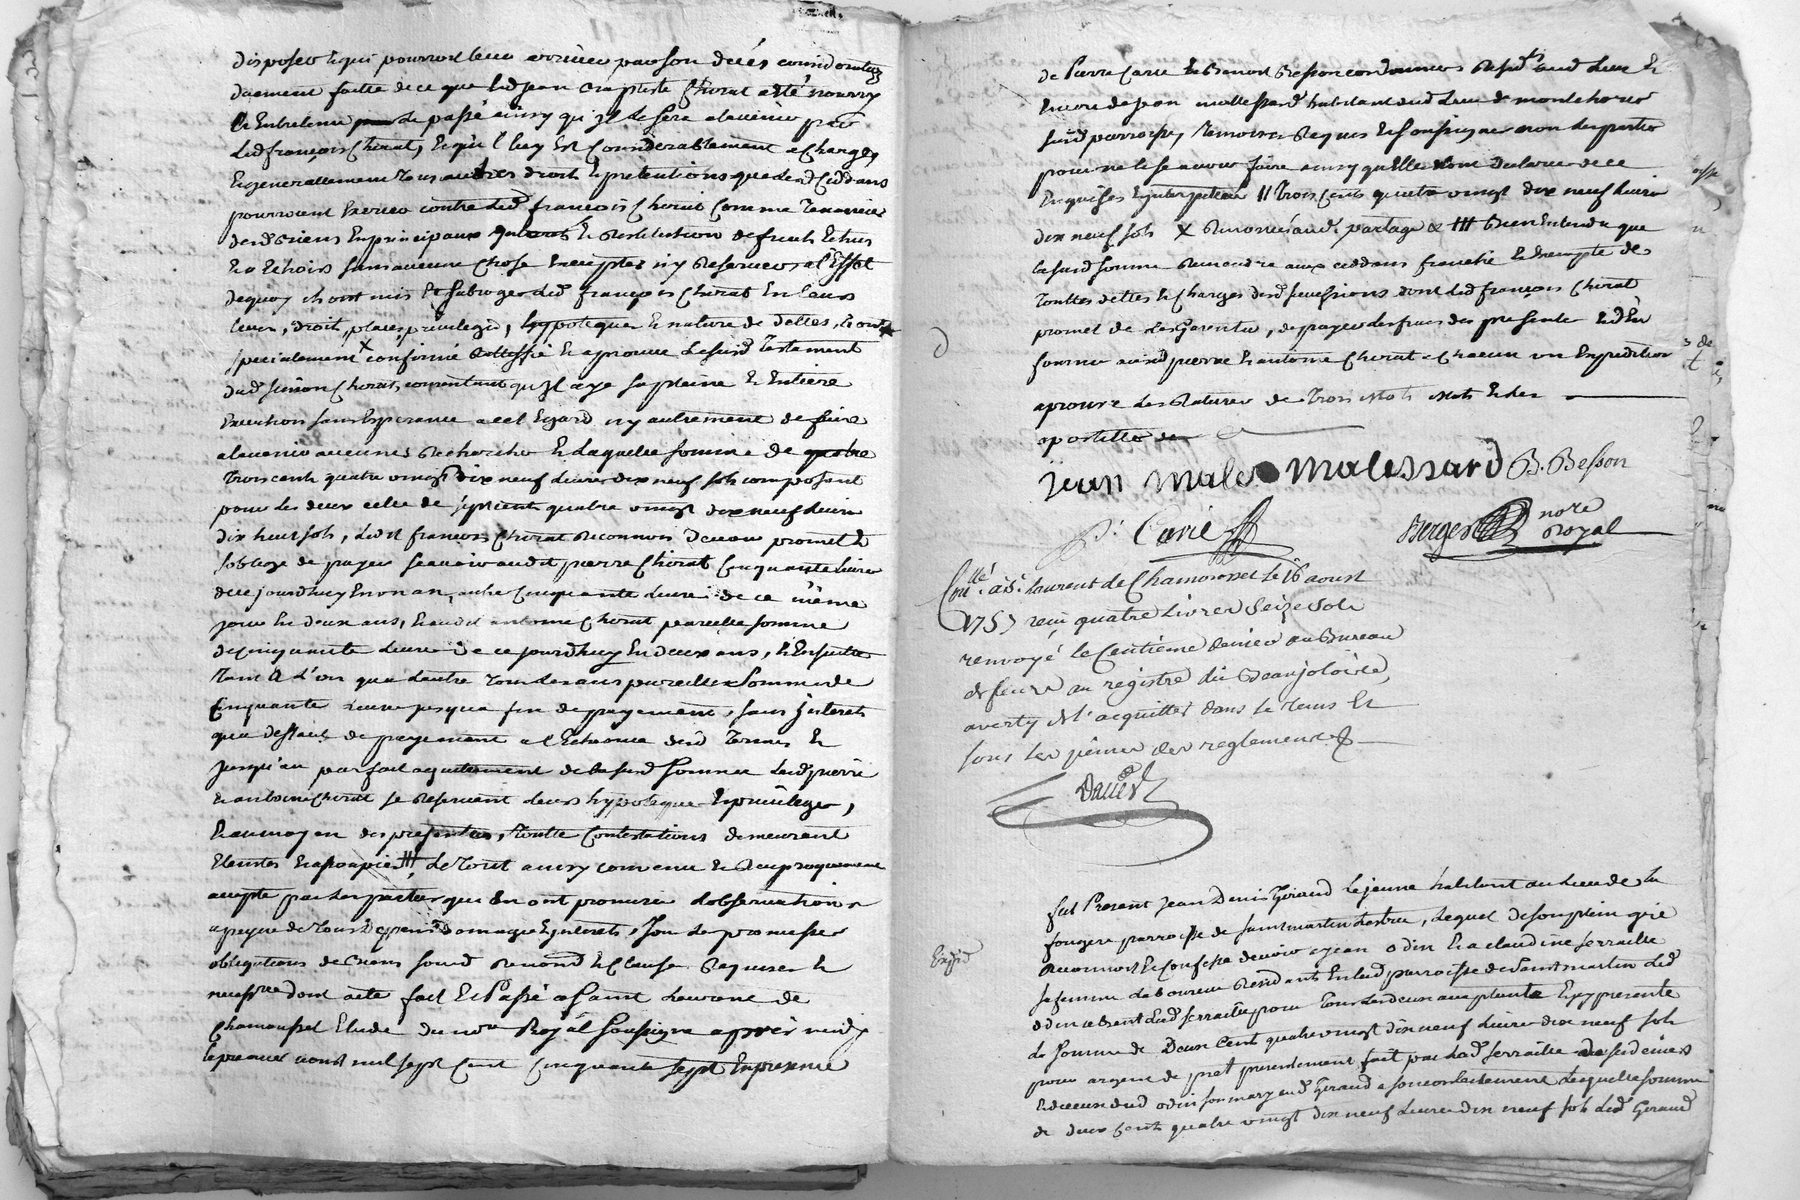 disposer & qui pourroit leur arriver par son decés consideration
duement faitte de ce que led jean Baptiste Chirat a esté nourry
& Entretenu de passé ainsy qu'jl le sera alavenir par
led françois Chirat, & qu'il luy Est Considerablement a charge,
& generallement tous autres droits & pretentions que lesd Ceddans
pourroient Exercer contre led françois Chirat Comme
desd Biens En principaux & Restitution de fruits
sans aucune chose Excepter ny Reserver a l'Effet
dequoy ils ont mis & Subrogé led françois Chirat En leurs
lieux, droit, place, privilege, hypoteque & nature de dettes, & ont
specialement X confirmé & aprouvé le susd Testament
dud Simon Chirat, consentant qu'Jl aye sa pleine & Entière
Execution sans Esperance a cet Egard ny autrement de faire
alavenir aucunes Recherches & Laquelle somme de
Trois cents quatre vingt dix neuf livres dix neuf sols composant
pour les deux celle de sept cent quatre vingt dix neuf livres
dix huit sols, led françois Chirat Reconnois Devoir promet &
soblige de payer scavoir aud pierre Chirat Cinquante livres
de ce jourdhuy En un an, autre Cinquante livres de ce même
jour En deux ans, & aud antoine Chirat pareille somme
de cinquante livres de ce jourdhuy En deux ans, & Ensuitte
Tant a l'un qu'a l'autre tous les ans pareilles Sommes de
Cinquante livres jusqua fin de payement, sans jnterets
qu'a deffaut de payement a l'Echeance desd Termes &
jusqu'au parfait aquittement de la susd somme lesd pierre
& antoine Chirat se Reservent leurs hypoteque & privilege,
& au moyen des presentes, toutte Contestations demeurent
Eteintes & assoupies ╫ Le Tout ainsy convenu & Reciproquement
accepté par les parties qui En ont promis Lobservation a
a peyne de tous Depens Domages & jnterets, sous les promesses
obligations de Biens soumd Renond & Clauses Requises &
necessres dont acte fait & Passé a Saint Laurent de
Chamousset Etude du nore Royal Soussigné après midy
le premier aoust mil sept Cent Cinquante sept En presence
de Pierre Carre & Benoit Besson cordonniers Residts aud Lieu &
Encore de jean mallessard habitant dud Lieu de montchorier
susd parroisse, Temoins Requis & soussignes non les parties
pour ne le scavoir faire ainsy qu'Elles ont declaré de ce
Enquises & jnterpellées // Trois cents quatre vingt dix neuf livres
dix neuf sols X Renoncé aud partage & ╫ Bien Entendu que
la susd somme Reviendra aux ceddans franche & Exempte de
Touttes dettes & charges desd successions dont led françois Chirat
promet de les Garentir, de payer les frais des presentes & d'En
fournir auxd pierre & antoine Chirat a chacun un Expedition
aprouvé les Ratures de Trois mots mots & des
apostilles
jean Males Malessard B. Besson
P. Carre
Berger nore
Royal
Conllé. a St. laurent de Chamousset le 16 aoust
1757 reçu quatre livres Seize sols
renvoyé le Centième denier au Bureau
de feurs au registre du Beaujolois,
averty de l'acquitter dans le tems &
sous les peines des reglements
Davier
fut Present jean Denis Giraud le jeune habitant au Lieu de la
fougere parroisse de saint martin Lestra, Lequel de son plein gré
Reconnoit & Confesse devoir a jean odin & a claudine ferraille
Expéd
sa femme Laboureur Residants En lad parroisse de saint martin Led
odin absent lad ferraille pour tous les deux acceptante & ypresente
la somme de Deux Cent quatre vingt dix neuf livres dix neuf sols
pour argent de pret presentement fait par lad ferraille de ses deniers
& de ceux dud odin son mary aud Giraud a son contentement Laquelle somme
de deux cent quatre vingt dix neuf livres dix neuf sols Led Giraud